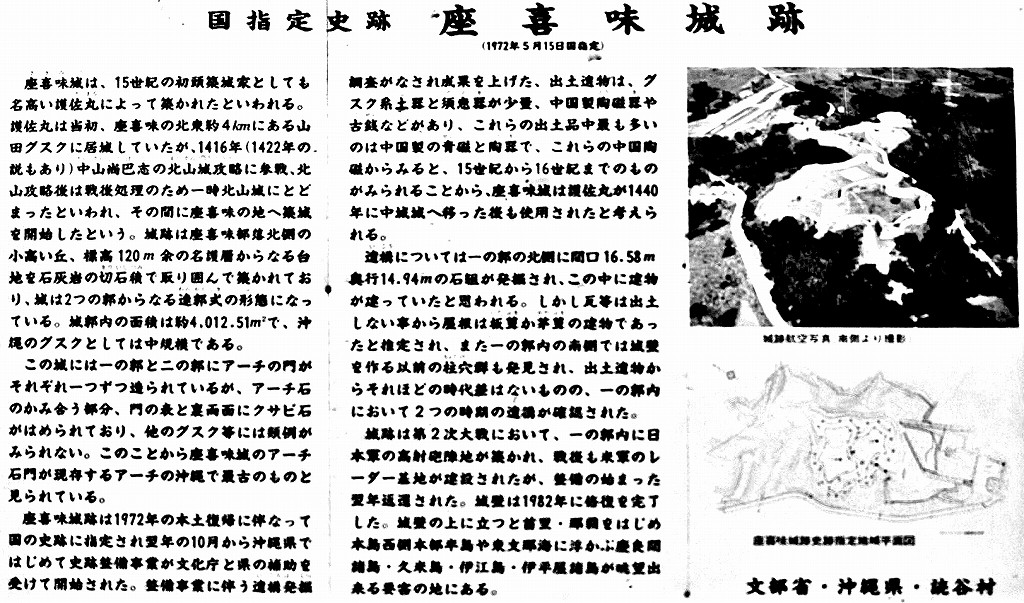 国指定史跡 座喜味城跡
(1972年5月15日国指定)
座喜味城は、15世紀の初頭築城家としても
名高い護佐丸によって築かれたといわれる。
護佐丸は当初、座喜味の北東約4kmにある山
田グスクに居城していたが、1416年(1422年の
説もあり)中山尚巴志の北山城攻略に参戦、北
山攻略後は戦後処理のため一時北山城にとど
まったといわれ、その間に座喜味の地へ築城
を開始したという。城跡は座喜味部落北側の
小高い丘、標高120m余の名護層からなる台
地を石灰岩の切石積で取り囲んで築かれてお
り、城は2つの郭からなる連郭式の形態になっ
ている。城郭内の面積は約4.012.51m²で、沖
縄のグスクとしては中規模である。
この城には一の郭と二の郭にアーチの門が
それぞれ一つずつ造られているが、アーチ石
のかみ合う部分、門の表と裏両面にクサビ石
がはめられており、他のグスク等には類例が
みられない。このことから座喜味城のアーチ
石門が現存するアーチの沖縄で最古のものと
見られている。
座喜味城跡は1972年の本土復帰に伴なって
国の史跡に指定され翌年の10月から沖縄県で
はじめて史跡整備事業が文化庁と県の補助を
受けて開始された。整備事業に伴う遺構発掘
調査がなされ成果を上げた、出土遺物は、グ
スク系土器と須恵器が少量、中国製陶磁器や
古銭などがあり、これらの出土品中最も多い
のは中国製の青磁と陶器で、これらの中国陶
磁からみると、15世紀から16世紀までのもの
がみられることから、座喜味城は護佐丸が1440
年に中城城へ移った後も使用されたと考えら
れる。
遺構については一の郭の北側に間口16.58m
奥行14.94mの石組が発掘され、この中に建物
が建っていたと思われる。しかし瓦等は出土
しない事から屋根は板葺か茅葺の建物であっ
たと推定され、また一の郭内の南側では城壁
を作る以前の柱穴群も発見され、出土遺物か
らそれほどの時代差はないものの、一の郭内
において2つの時期の遺構が確認された。
城跡は第2次大戦において、一の郭内に日
本軍の高射砲陣地が築かれ、戦後も米軍のレ
ーダー基地が建設されたが、整備の始まった
翌年返還された。城壁は1982年に修復を完了
した。城壁の上に立つと首里・那覇をはじめ
本島西側本部半島や東支那海に浮かぶ慶良間
諸島・久米島・伊江島・伊平屋諸島が眺望出
来る要害の地にある。
城跡航空写真 南側より撮影
座喜味城跡史跡指定地域平面図
文部省・沖縄県・読谷村